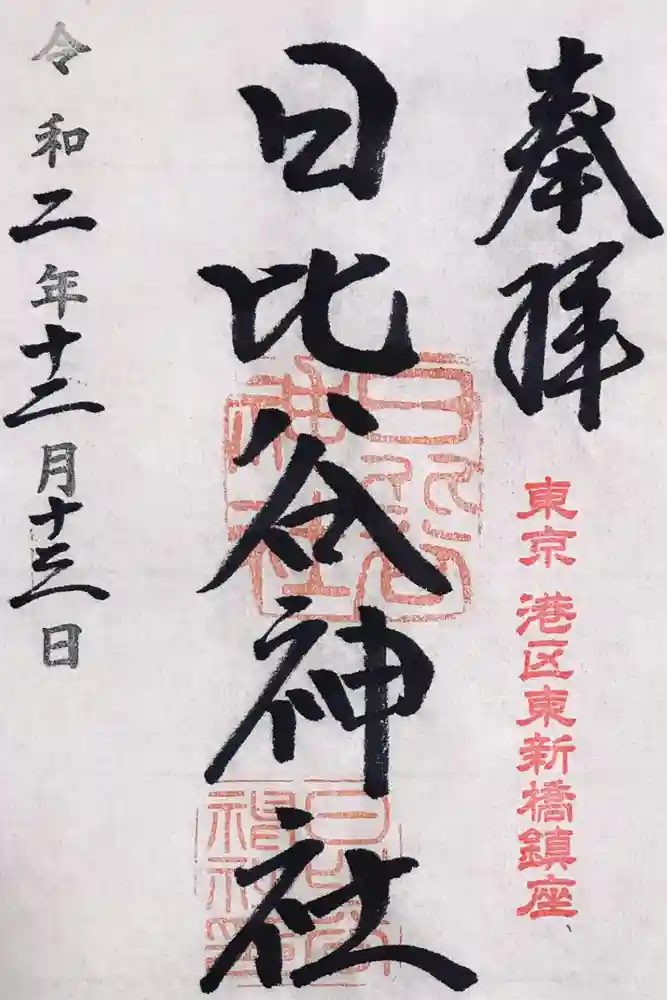 奉拝
東京 港区東新橋鎮座
日比谷神社
日比谷神社
令和二年十二月十三日